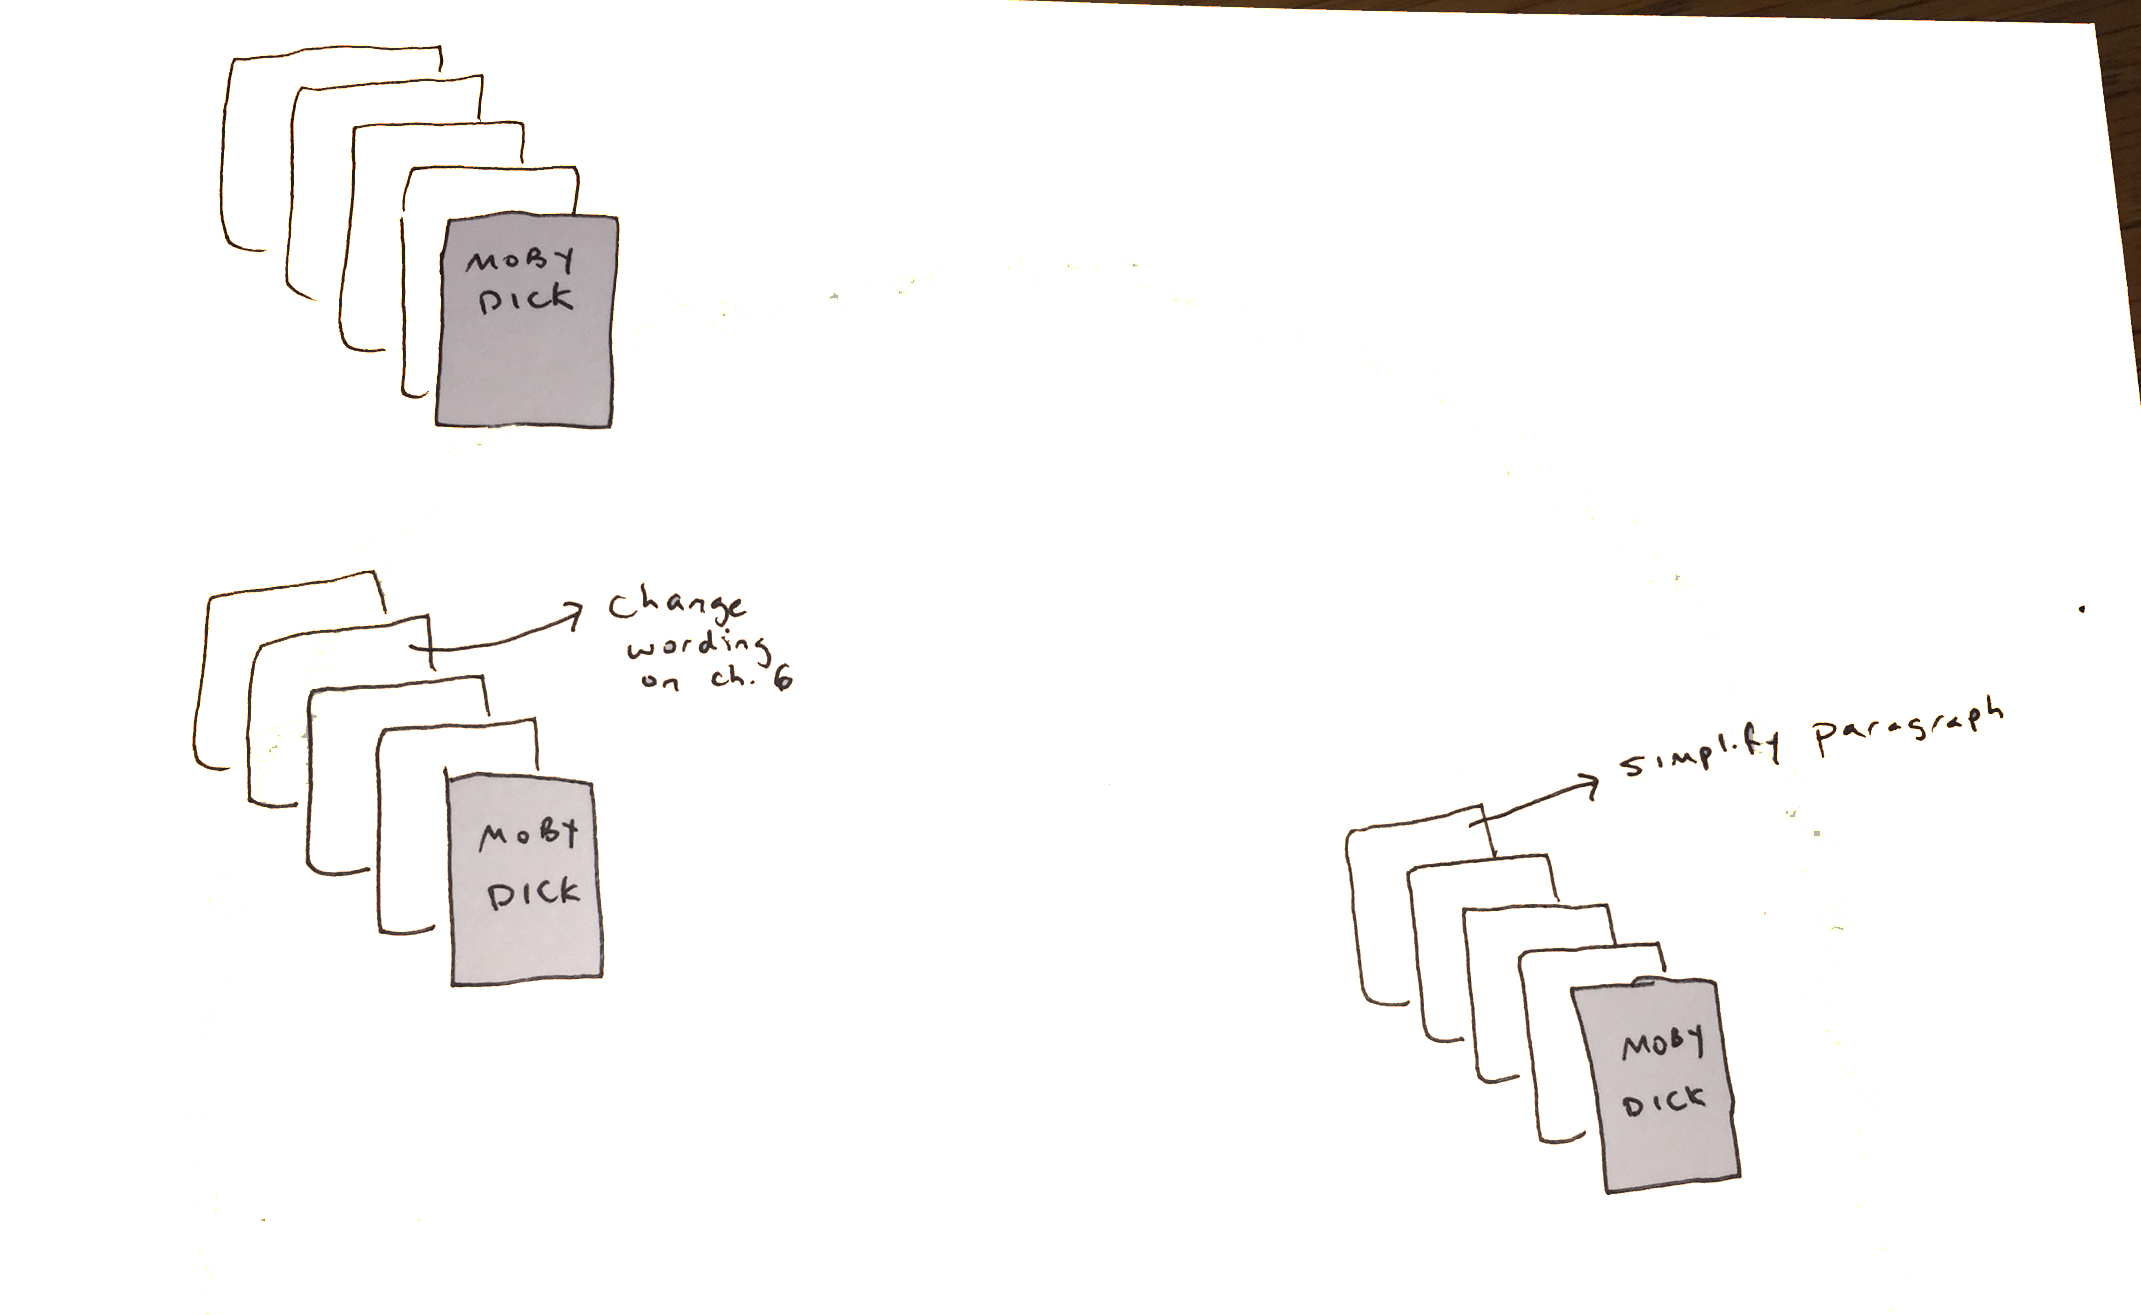 MOBY
DICK
change
wording
on ch. 6
MOBY
DICK
simplify paragraph
MOBY
DICK